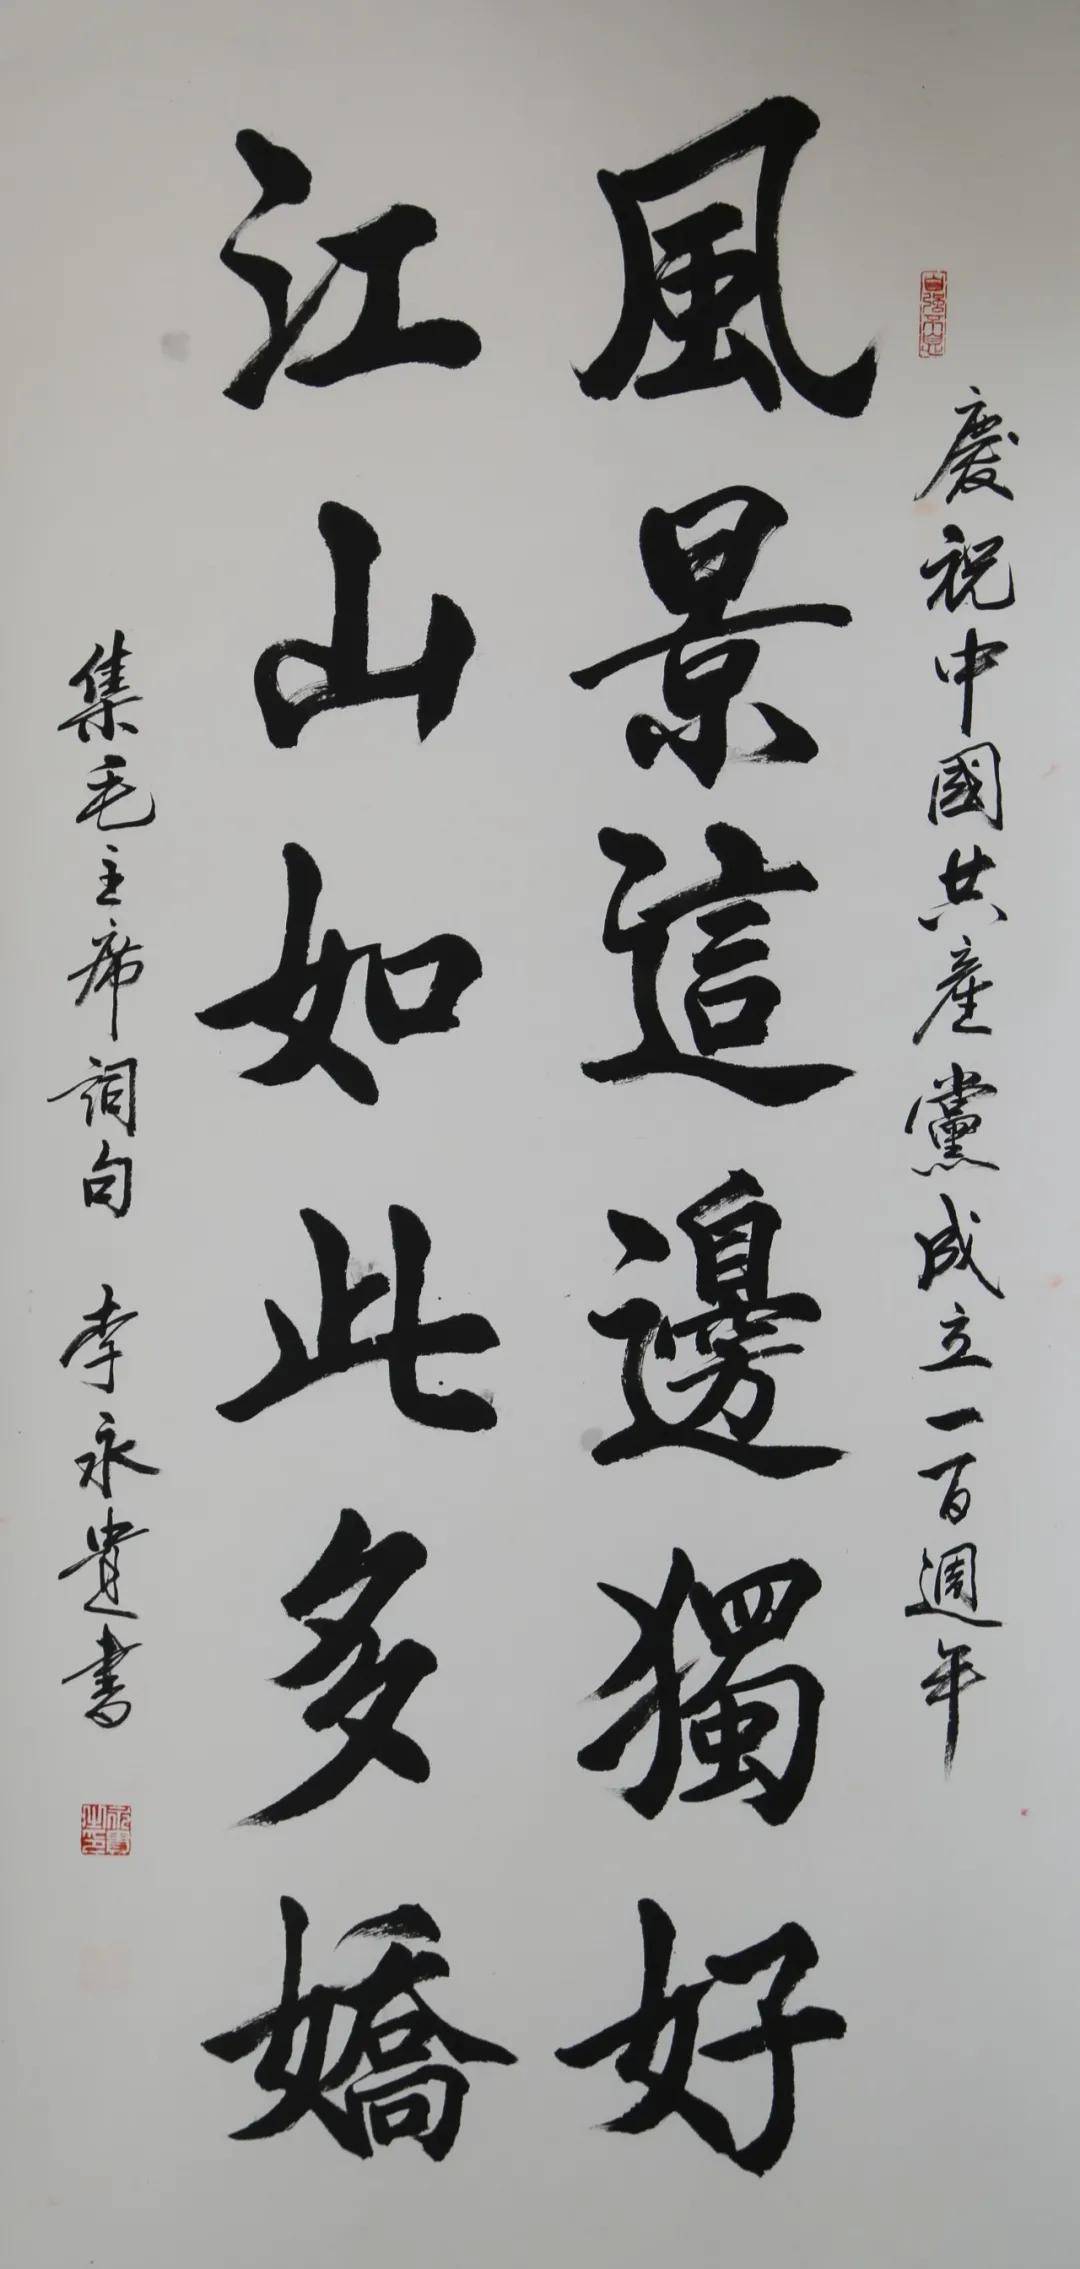 自強不息
慶祝中國共產黨成立一百週年
風景這邊獨好
江山如此多嬌
集毛主席詞句 李永貴書